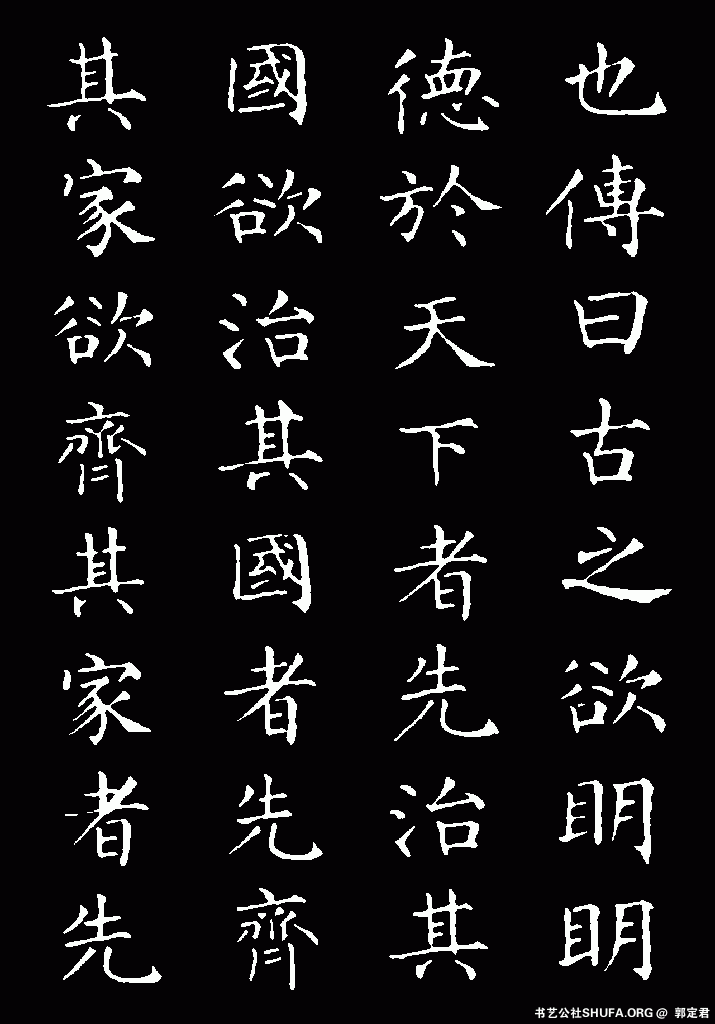 也傳曰古之欲明明
德於天下者先治其
國欲治其國者先齊
其家欲齊其家者先
书艺公社SHUFA.ORG @ 郭定君